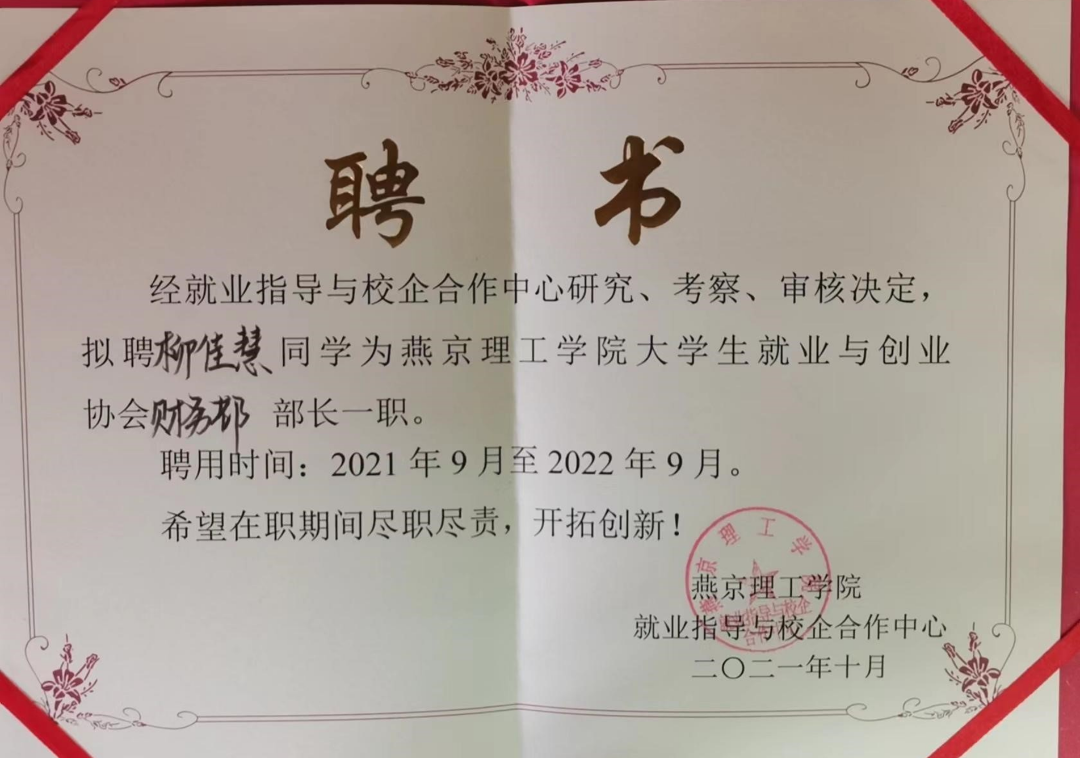 聘书
经就业指导与校企合作中心研究、考察、审核决定，
拟聘柳佳慧同学为燕京理工学院大学生就业与创业
协会财务部 部长一职。
聘用时间：2021年9月至2022年9月。
希望在职期间尽职尽责，开拓创新！
燕京理工学院
就业指导与校企合作中心
二〇二一年十月
燕京理工学院
就业指导与校企
合作